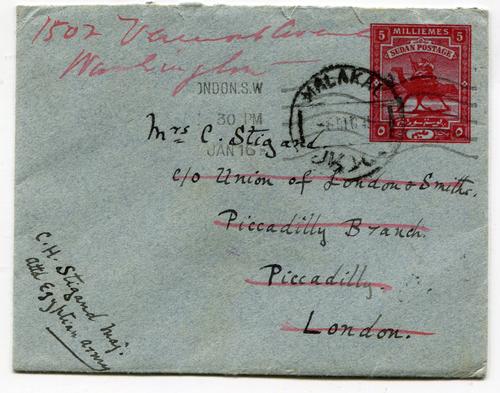 1502 Vermont Avenue
Washington
5 MILLIEMES 5
SUDAN POSTAGE
MALAKAL
LONDON.S.W
30 PM
JAN 16
Mrs C. Stigand
c/o Union of London & Smiths.
Piccadilly Branch.
Piccadilly.
London.
C.H. Stigand Maj.
attd Egyptian army